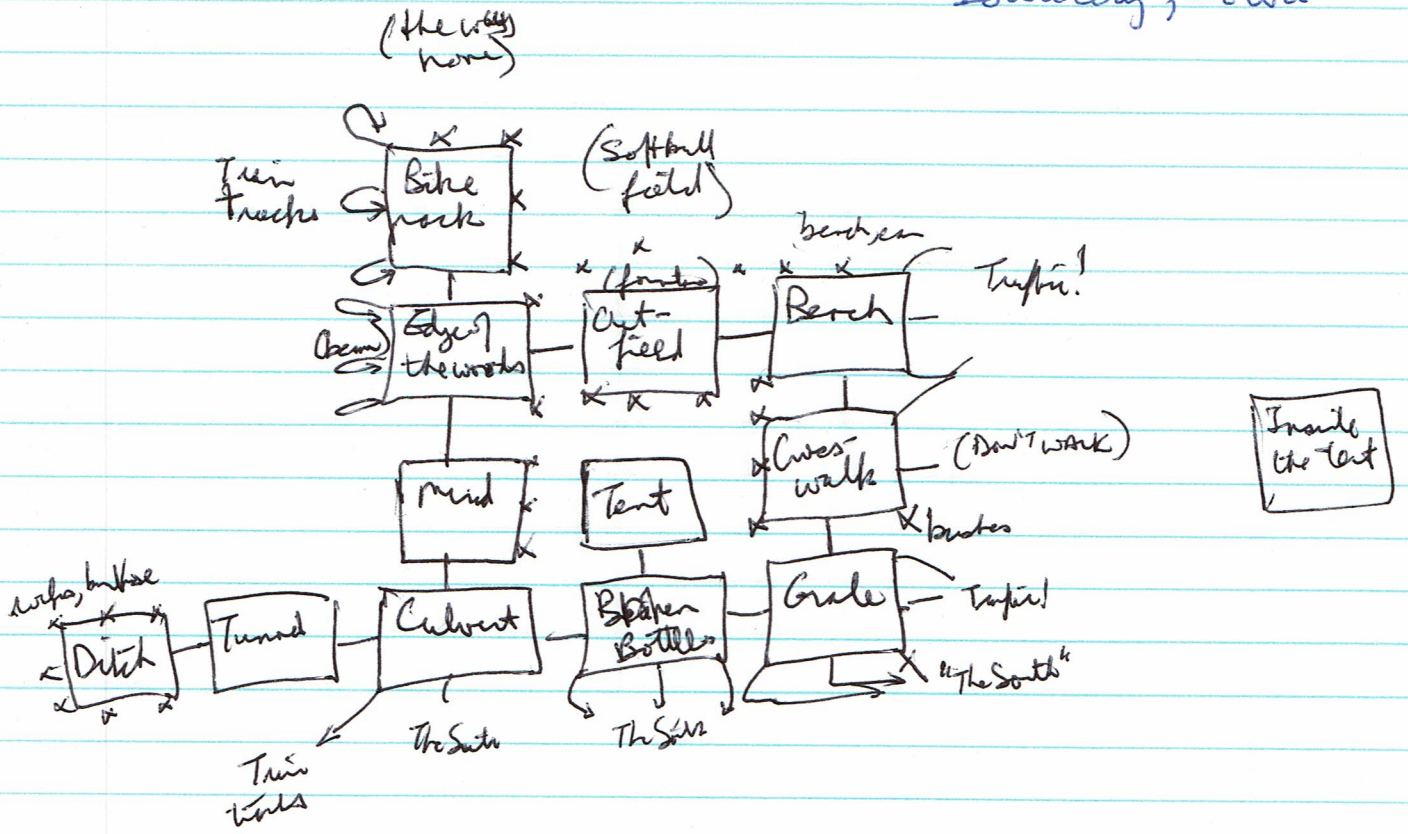 (the way
home)
Train
Tracks
Bike
rack
(Softball
field)
bench, 
Traffic!
(berm)
Edge of
the woods
Out-
field
Bench
Cross-
walk
(DON'T WALK)
Inside
the tent
Mud
Tent
bushes
Ditch
Tunnel
Culvert
Broken
Bottles
Grate
Traffic!
"The South"
The South
The South
Train
tracks